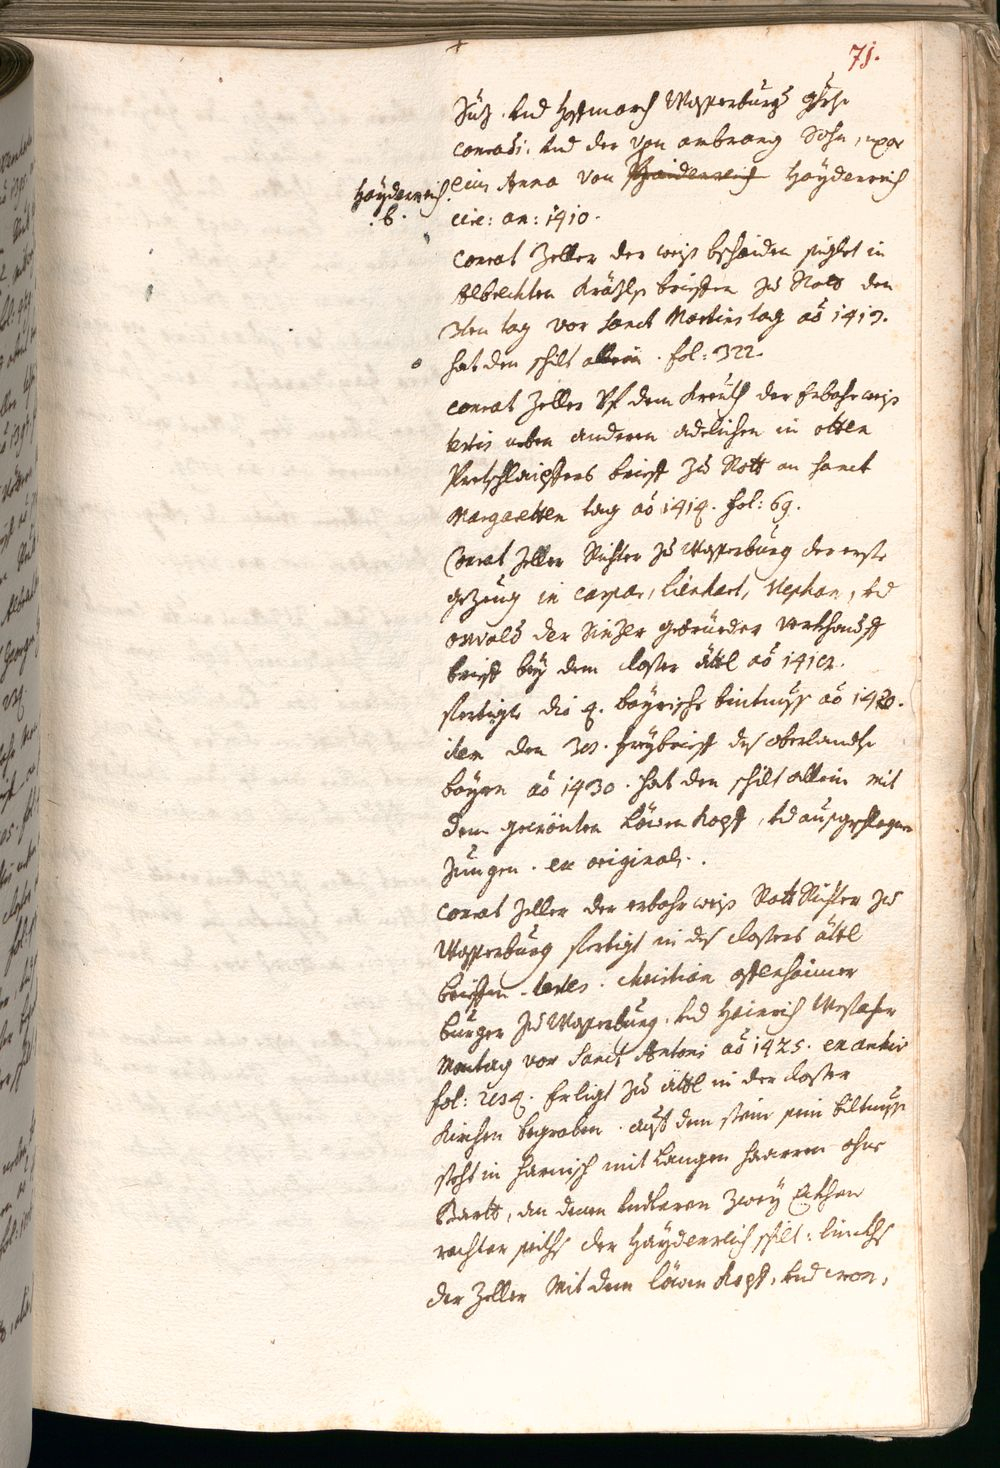 71.
Sulz. und Hoffmarch Wasserburgs
Conradi. und der von ambrang Sohn, uxor
eius Anna von Haidenreich Hayderreich
Hayderreich.
.6.
circ: an: 1410.
Conrat Zeller der weis bschaiden siglet in
Albrechten brieffen zu Rott den
3ten tag vor Sanct Martins tag aõ 1413.
hat den schilt allein. fol: 322.
Conrat Zeller Uf dem Kreuth der Erbahr weis
testis neben anderen adelichen in otten
Pretschlaipffers brieff zu Rott an Sanct
Margaretten tag aõ 1414. fol: 69.
Conrat Zeller Richter zu Wasserburg der erste
gezeug in Caspar, Lienhart, Stephan, und
oswald der Sinzer gebrüeder verkhauff
brieff bey dem closter ättl aõ
fertigte die 4. bayrische bintnuss aõ 1420.
item den 30. freybrieff des oberlandts
bayrn aõ 1430. hat den schilt allein mit
dem gecrönten Löwen Kopff, und ausgeschlagner
Zungen. ex original:.
Conrat Zeller der erbahr weis Statt Richter zu
Wasserburg fertigt in des closters ättl
brieffen. testes. Christian ostenhaimer
burger zu Wasserburg. und Hainrich
Montag vor Sanct Antoni aõ 1425.
fol: Er ligt zu ättl in der closter
Kirchen begraben. auff dem stein sein biltnuss
steht in harnisch mit Langen haaren ohne
Bartt, an denen undteren zwey Ekhen
rechter seiths der Hayderreich schilt: linckhs
der Zeller Mit dem löwen Kopff, und cron,